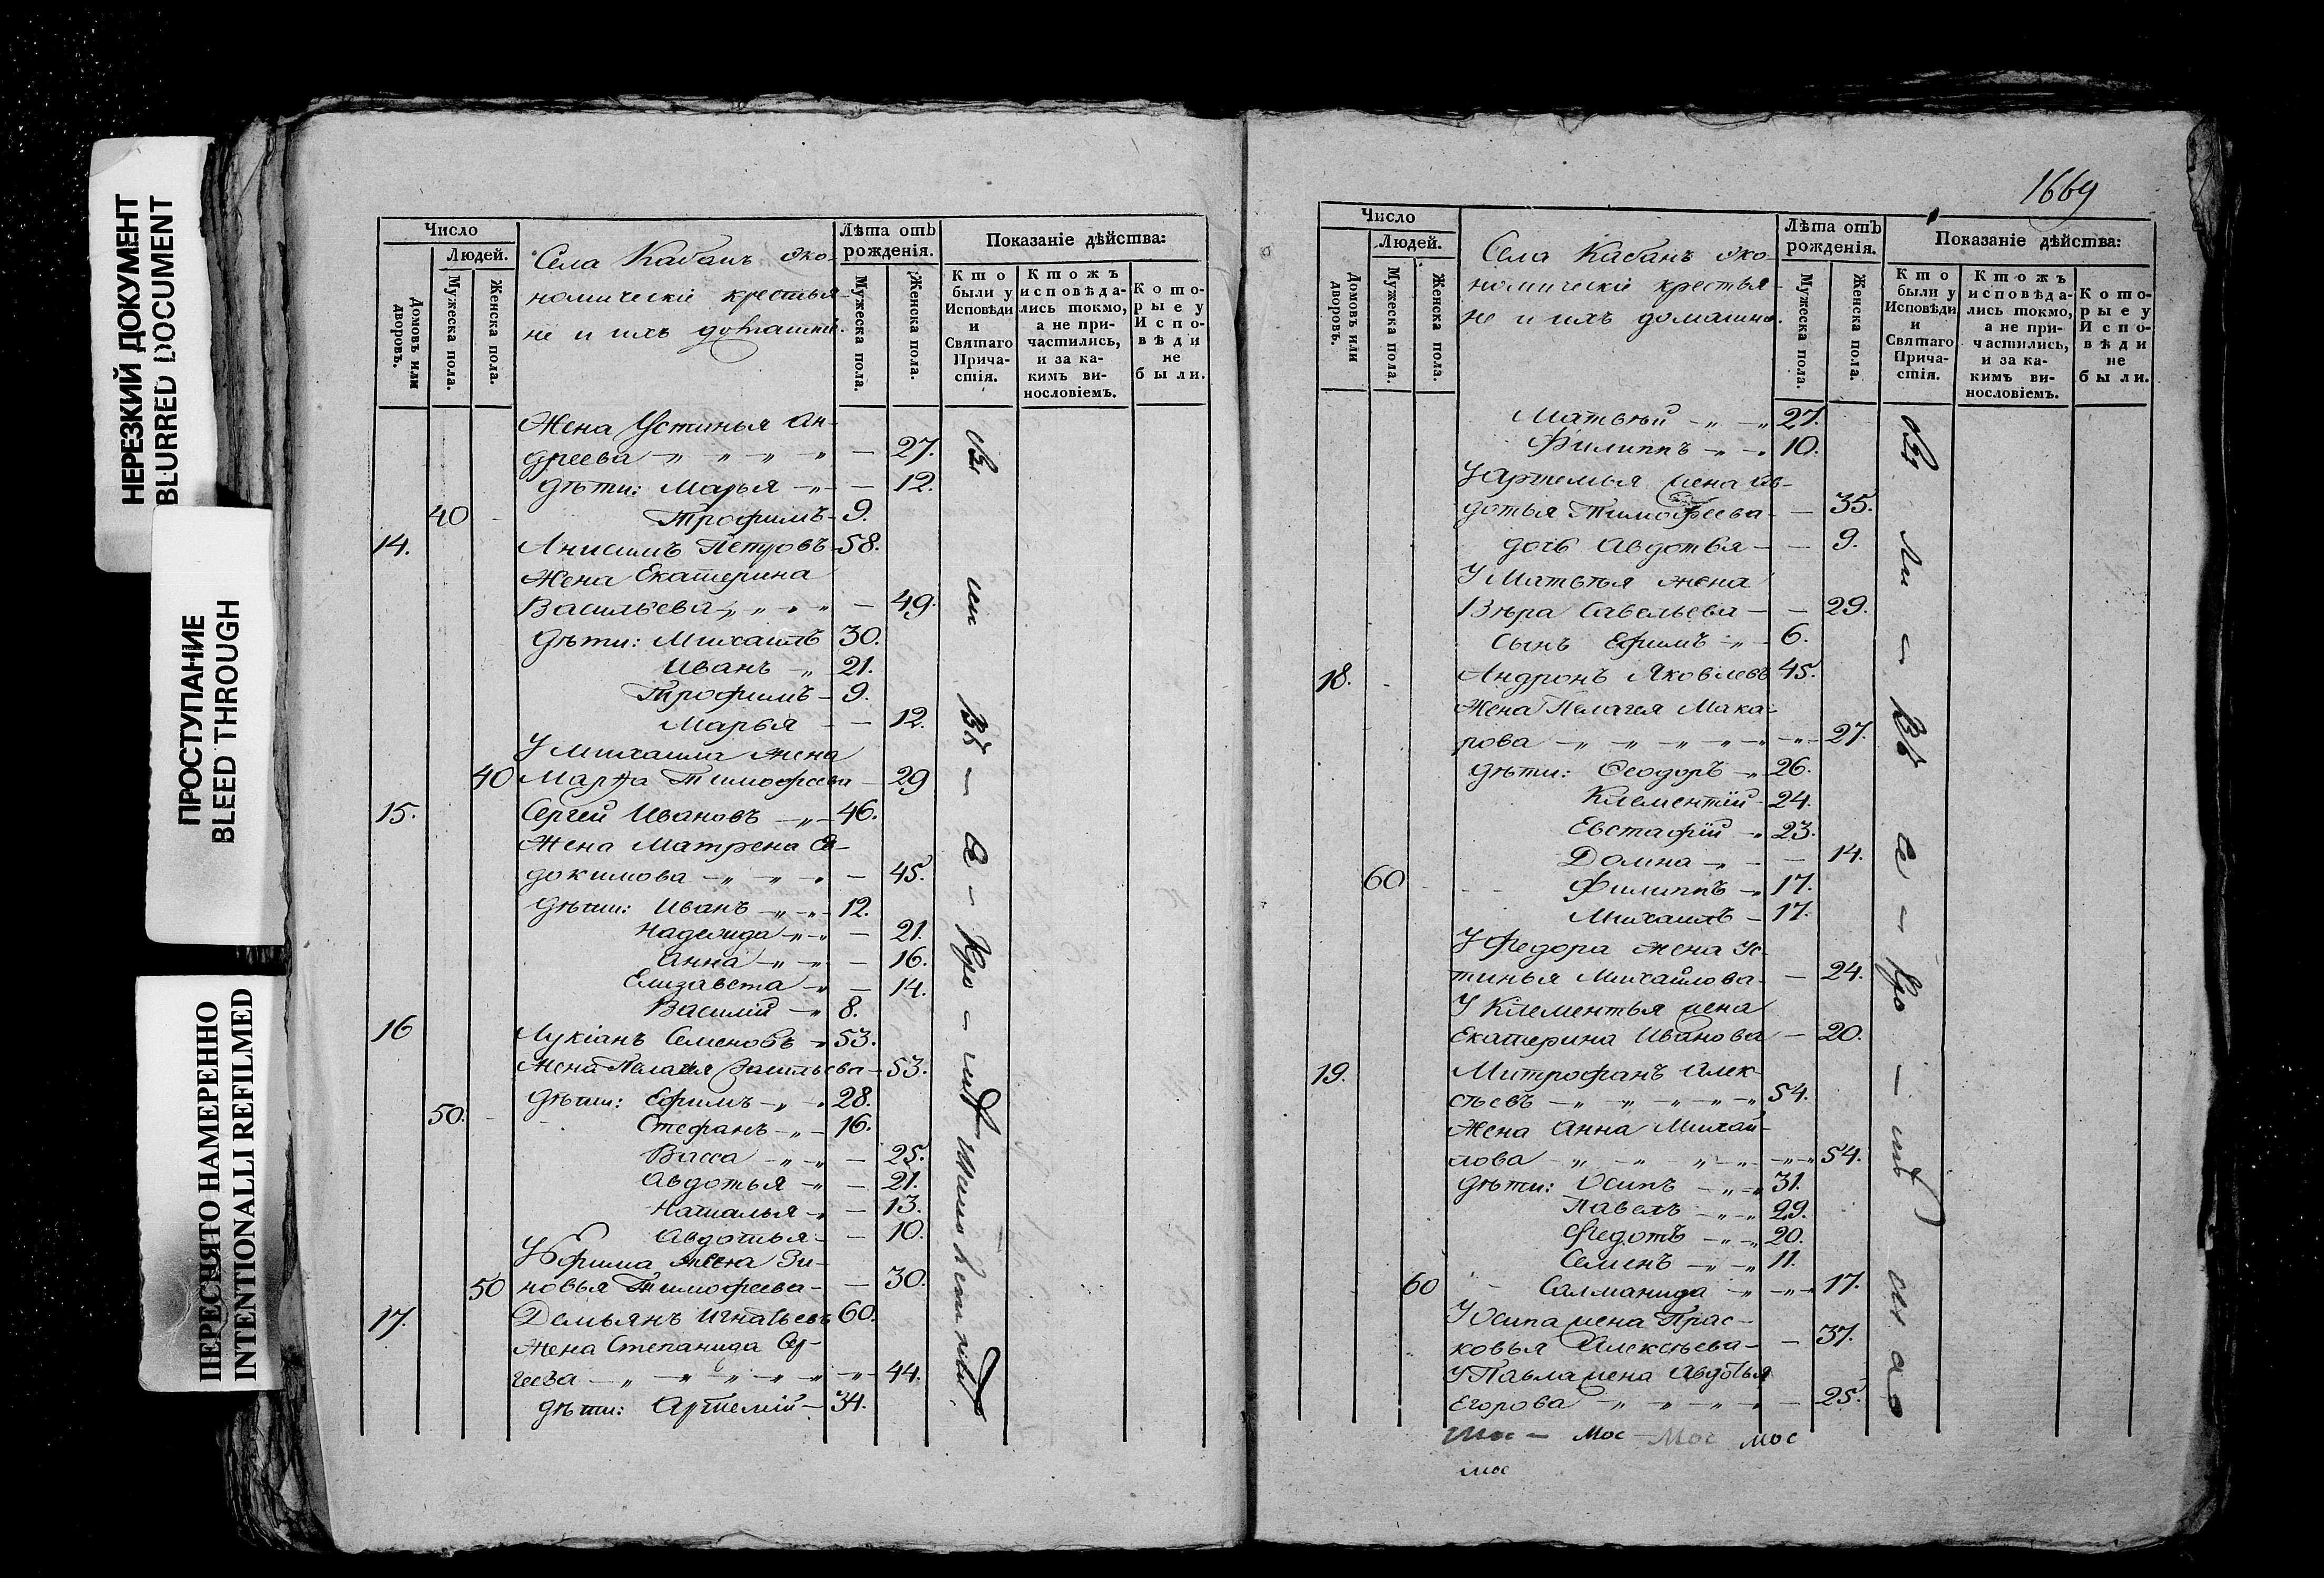 НЕРЕЗКИЙ ДОКУМЕНТ
BLURRED DOCUMENT
ПРОСТУПАНИЕ
BLEED THROUGH
ПЕРЕСНЯТО НАМЕРЕННО
INTENTIONALLI REFILMED
Число
Людей.
Домовъ или дворовъ.
Мужеска пола.
Женска пола.
Села Кабанъ эко-
номическіе крестья-
не и ихъ домашніе.
Лѣта отъ рожденія.
Мужеска пола.
Женска пола.
Показаніе дѣйства:
Кто были у Исповѣди и Святаго Прича- стія.
Ктожъ исповѣда- лись токмо, а не при- частились, и за ка- кимъ ви- нословіемъ.
Кото- рые у Испо- вѣди не были.
Жена Устинья Ан-
дреева — 27.
Дѣти: Марья — 12.
40 Трофимъ 9.
14. Анисимъ Петровъ 58.
Жена Екатерина
Васильева — 49.
Дѣти: Михаилъ 30.
Иванъ 21.
Трофимъ 9.
Марья — 12.
У Михаила жена
40 Марѳа Тимофеева — 29
15. Сергей Ивановъ 46.
Жена Матрена Ев-
докимова — 45.
Дѣти: Иванъ 12.
Надежда — 21.
Анна — 16.
Елизавета — 14.
Василій 8.
16 Лукіанъ Семеновъ 53.
Жена Пелагея Васильева 53.
Дѣти: Ефимъ 28.
50. Стефанъ 16.
Васса — 25.
Авдотья — 21.
Наталья — 13.
Авдотья — 10.
У Ефима жена Зи-
50 новья Тимофеева — 30.
17. Демьянъ Игнатьевъ 60.
Жена Степанида Сер-
геева — 44.
Дѣти: Артемій 34.
1669
Число
Людей.
Домовъ или дворовъ.
Мужеска пола.
Женска пола.
Села Кабанъ эко-
номическіе крестья-
не и ихъ домашніе.
Лѣта отъ рожденія.
Мужеска пола.
Женска пола.
Показаніе дѣйства:
Кто были у Исповѣди и Святаго Прича- стія.
Ктожъ исповѣда- лись токмо, а не при- частились, и за ка- кимъ ви- нословіемъ.
Кото- рые у Испо- вѣди не были.
Матвѣй 27.
Филиппъ 10.
У Артемья жена Ав-
дотья Тимофеева — 35.
дочь Авдотья — 9.
У Матвѣя жена
Вѣра Савельева — 29.
Сынъ Ефимъ 6.
18. Андронъ Яковлевъ 45.
Жена Пелагея Мака-
рова — 27.
Дѣти: Ѳеодоръ 26.
Климентій 24.
Евстафій 23.
Домна — 14.
60 Филиппъ 17.
Михаилъ 17.
У Федора жена Ус-
тинья Михайлова — 24.
У Клементья жена
Екатерина Иванова — 20.
19. Митрофанъ Алек-
сѣевъ 54.
Жена Анна Михай-
лова — 54.
Дѣти: Осипъ 31.
Павелъ 29.
Федотъ 20.
Семенъ 11.
60 Салманида 17.
У Осипа жена Прас-
ковья Алексѣева — 37.
У Павла жена Авдотья
Егорова — 25.
Мос — Мос — Мос мос
мос